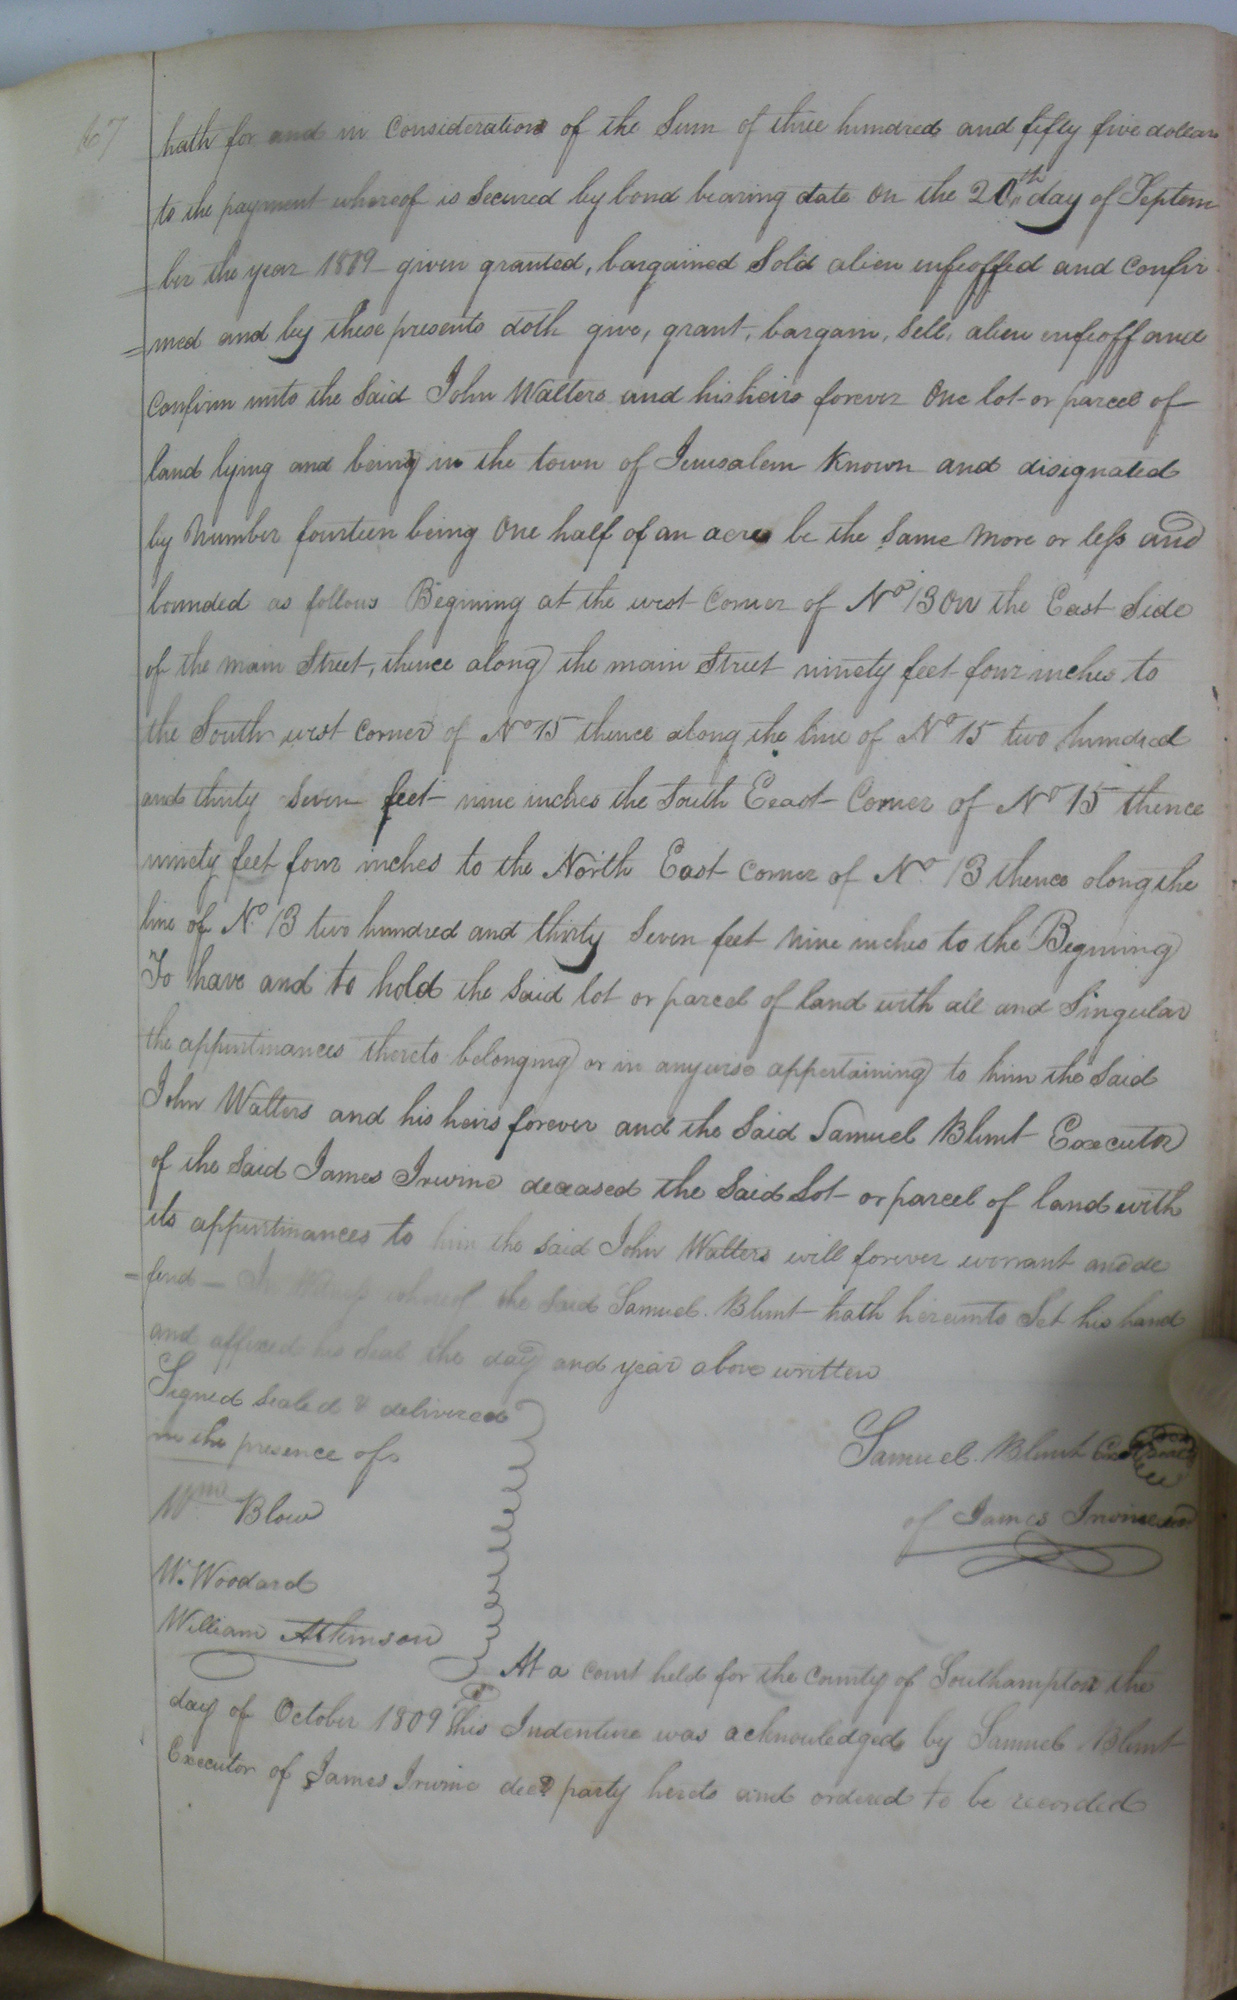 67
hath for and in Consideration of the Sum of three hundred and fifty five dollars
to the payment whereof is Secured by bond bearing date on the 20th day of Septem
= ber the year 1809 given granted, bargained Sold alien enfeoffed and Confir
= med and by these presents doth give, grant, bargain, Sell, alien enfeoff and
Confirm unto the Said John Walters and his heirs forever One lot or parcel of
land lying and being in the town of Jerusalem known and disignated
by Number fourteen being One half of an acre be the Same More or less and
bounded as follows Begining at the west Corner of No 13 On the East Side
of the main Street, thence along the main Street ninety feet four inches to
the South west Corner of No 15 thence along the line of No 15 two hundred
and thirty Seven feet nine inches the South East Corner of No 15 thence
ninety feet four inches to the North East Corner of No 13 thence along the
line of No 13 two hundred and thirty Seven feet Nine inches to the Begining
To have and to hold the Said lot or parcel of land with all and Singular
the appurtinances thereto belonging or in anywise appertaining to him the Said
John Walters and his heirs forever and the Said Samuel Blunt Executor
of the Said James Irwine deceased the Said Lot or parcel of land with
its appurtinances to him the Said John Walters will forever warrant and de
= fend — In Witness whereof the Said Samuel Blunt hath hereunto Set his hand
and affixed his Seal the day and year above written
Signed Sealed & delivered
in the presence of
Samuel Blunt Exr Seal
Wm Blow
of James Irwine
W. Woodard
William Atkinson
At a Court held for the County of Southampton the
day of October 1809 This Indenture was acknowledged by Samuel Blunt
Executor of James Irwine decd party hereto and ordered to be recorded